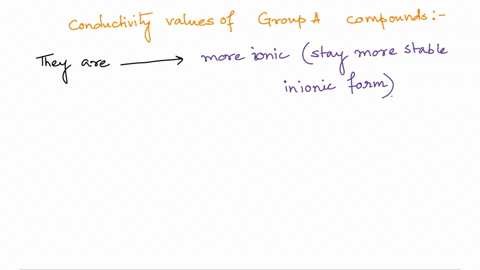 Conductivity values of Group A compounds:-
They are → more ionic (stay more stable
in ionic form)